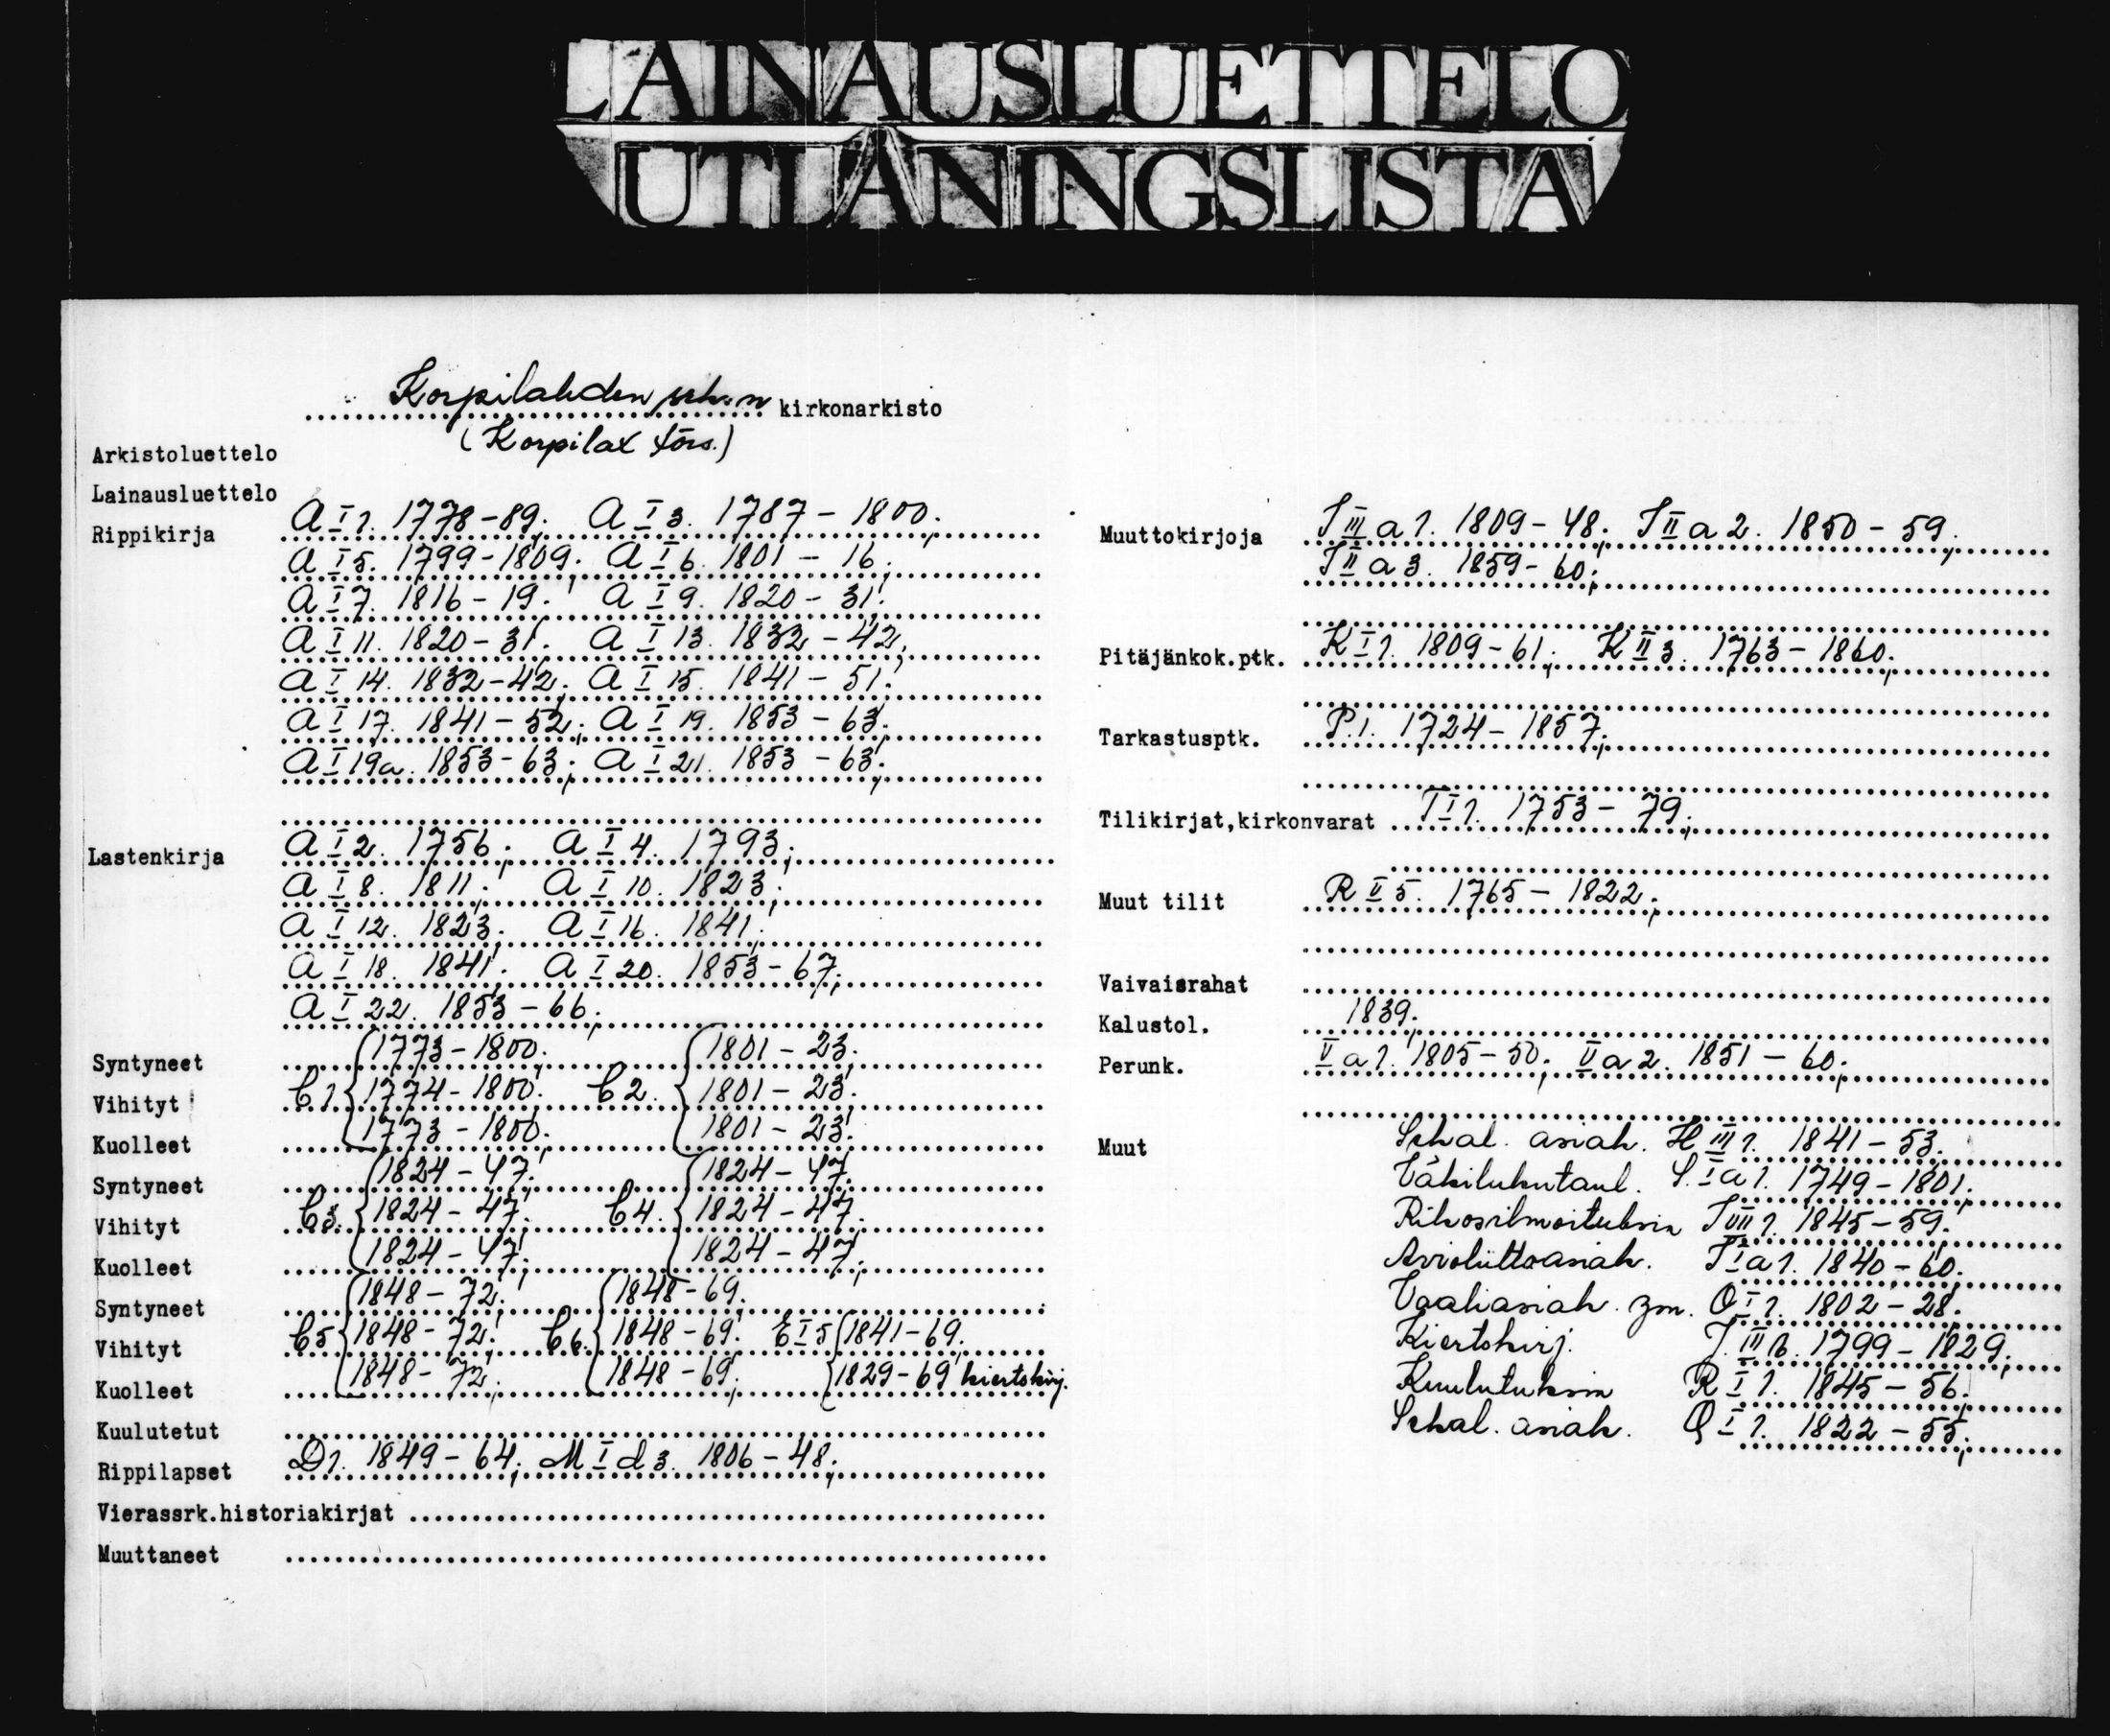 LAINAUSLUETTELO
UTLÅNINGSLISTA
Korpilahden srk:n kirkonarkisto
(Korpilax förs.)
Arkistoluettelo
Lainausluettelo
Rippikirja A I 1. 1778-89; A I 3. 1787-1800;
A I 5. 1799-1809; A I 6. 1801-16;
A I 7. 1816-19; A I 9. 1820-31;
A I 11. 1820-31; A I 13. 1832-42;
A I 14. 1832-42; A I 15. 1841-51;
A I 17. 1841-52; A I 19. 1853-63;
A I 19a. 1853-63; A I 21. 1853-63;
Lastenkirja A I 2. 1756; A I 4. 1793;
A I 8. 1811; A I 10. 1823;
A I 12. 1823; A I 16. 1841;
A I 18. 1841; A I 20. 1853-67;
A I 22. 1853-66;
Syntyneet 1773-1800; 1801-23;
Vihityt C 1 1774-1800; C 2. 1801-23;
Kuolleet 1773-1800; 1801-23;
Syntyneet 1824-47; 1824-47;
Vihityt C 3. 1824-47; C 4. 1824-47
Kuolleet 1824-47; 1824-47;
Syntyneet 1848-72; 1848-69.
Vihityt C 5 1848-72; C 6. 1848-69; E I 5 1841-69.
Kuolleet 1848-72; 1848-69; 1829-69 kiertokirj.
Kuulutetut
Rippilapset D 1. 1849-64; M I d 3. 1806-48;
Vierassrk.historiakirjat
Muuttaneet
Muuttokirjoja J III a 1. 1809-48; J II a 2. 1850-59;
J II a 3. 1859-60;
Pitäjänkok.ptk. K I 1. 1809-61; K II 3. 1763-1860;
Tarkastusptk. P.1. 1724-1857;
Tilikirjat,kirkonvarat T I 1. 1753-79;
Muut tilit R II 5. 1765-1822;
Vaivaisrahat
Kalustol. 1839;
Perunk. V a 1. 1805-50; V a 2. 1851-60;
Muut Sekal. asiak. H III 1. 1841-53.
Väkilukutaul. S. I a 1. 1749-1801;
Rikosilmoituksia J VII 1. 1845-59.
Avioliittoasiak. J I a 1. 1840-60;
Vaaliasiak. ym. O I 1. 1802-28.
Kiertokirj. J. III b. 1799-1829;
Kuulutuksia R I 1. 1845-56;
Sekal. asiak. Q I 1. 1822-55;